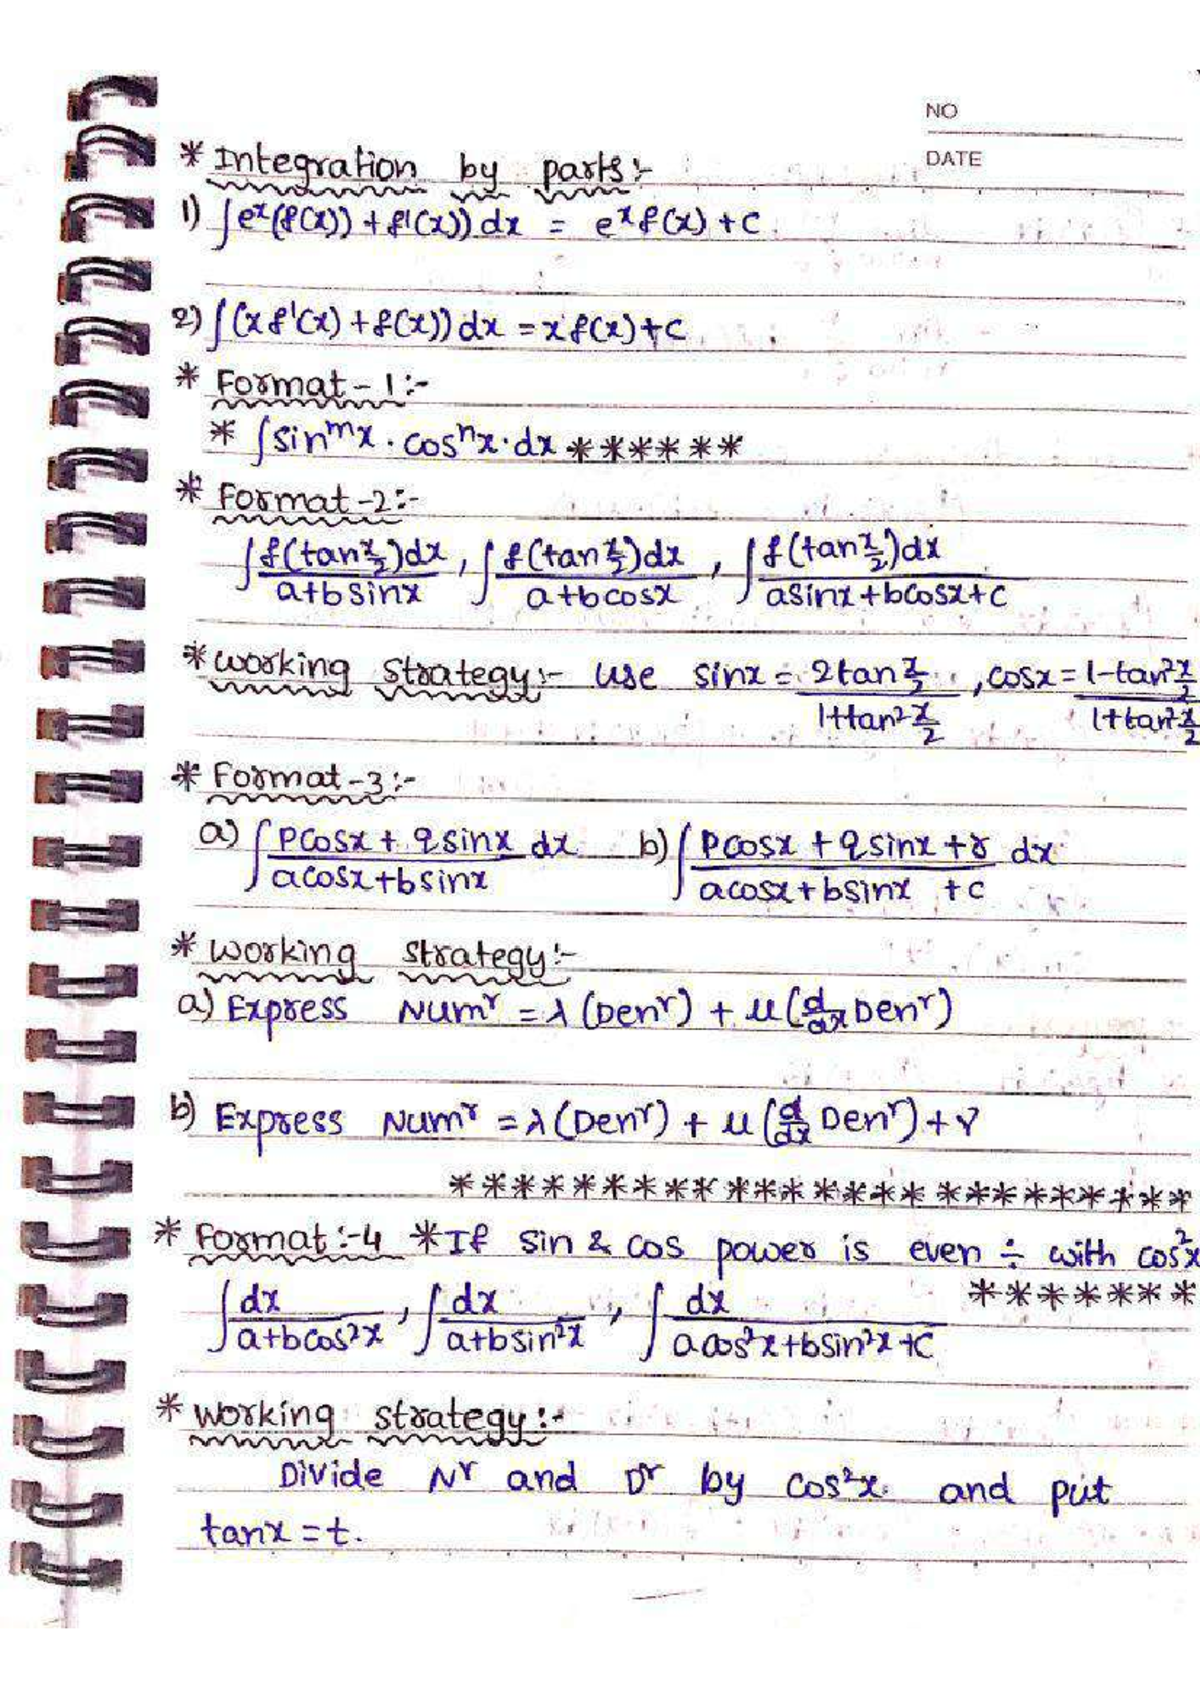 NO
DATE
* Integration by parts:-
1) ∫eˣ(f(x)) + f'(x)) dx = eˣ f(x) + c
2) ∫(x f'(x) + f(x)) dx = x f(x) + c
* Format - 1:-
* ∫sinᵐx · cosⁿx · dx ******
* Format -2:-
∫ f(tan x/2)dx / a+b sinx , ∫ f(tan x/2)dx / a+b cosx , ∫ f(tan x/2)dx / asinx+bcosx+c
* Working Strategy:- Use sinx = 2tan x/2 / 1+tan² x/2 , cosx = 1-tan² x/2 / 1+tan² x/2
* Format -3:-
a) ∫ Pcosx + qsinx / acosx+bsinx dx b) ∫ Pcosx + qsinx + r / acosx+bsinx +c dx
* Working Strategy:-
a) Express Numʳ = λ (Denʳ) + μ (d/dx Denʳ)
b) Express Numʳ = λ (Denʳ) + μ (d/dx Denʳ) + γ
*************************
* Format:-4 *If sin & cos power is even ÷ with cos²x
*******
∫ dx / a+bcos²x , ∫ dx / a+bsin²x , ∫ dx / acos²x+bsin²x+c
* Working strategy:-
Divide Nʳ and Dʳ by cos²x. and put
tanx = t.